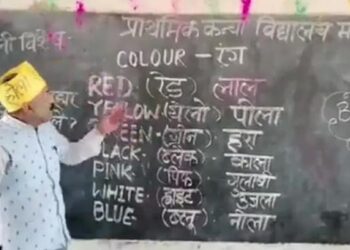 प्राथमिक कन्या विद्यालय म
COLOUR - रंग
RED (रेड) लाल
YELLOW (येलो) पीला
GREEN (ग्रीन) हरा
BLACK (ब्लैक) काला
PINK (पिंक) गुलाबी
WHITE (ह्वाइट) उजला
BLUE (ब्लू) नीला